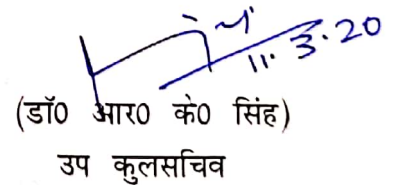 11.3.20
(डॉ0 आर0 के0 सिंह)
उप कुलसचिव